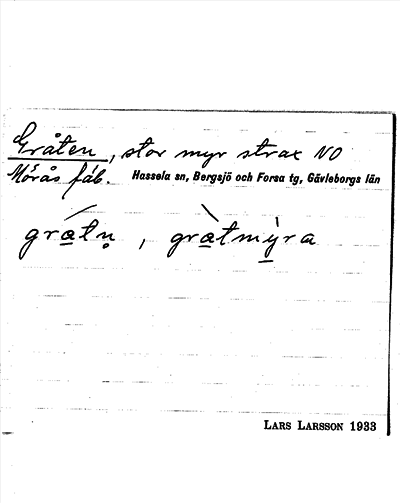 Gråten, stor myr strax NO
Mörås fäb. Hassela sn, Bergsjö och Forsa tg, Gävleborgs län
gra̲tṇ, gra̲tmy̲ra
LARS LARSSON 1933